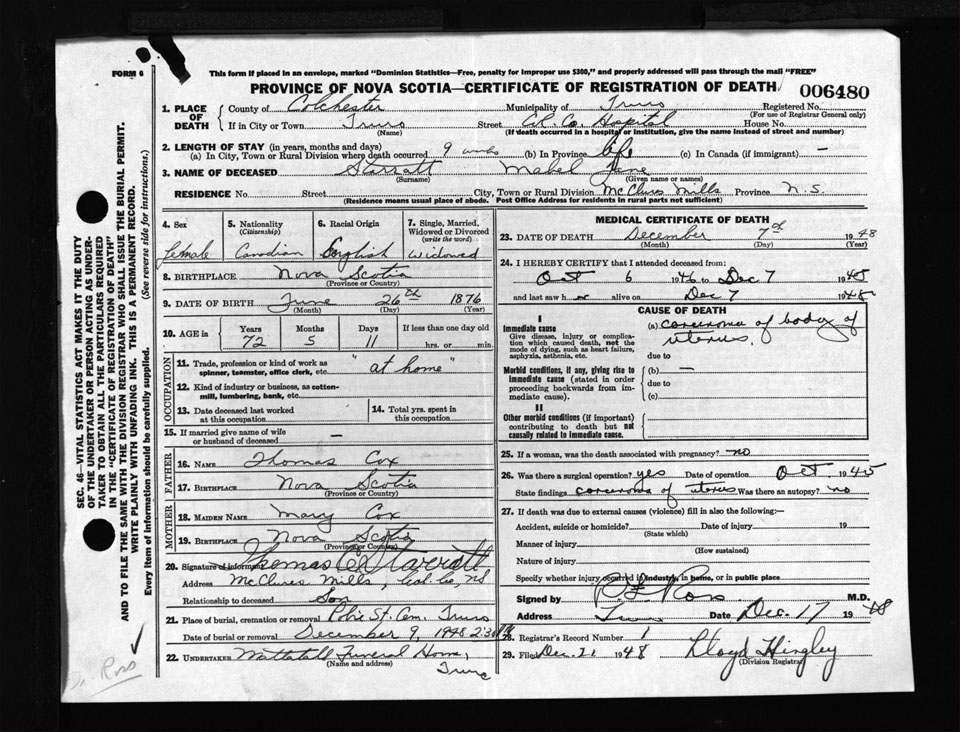 FORM 6
This form if placed in an envelope, marked "Dominion Statistics—Free, penalty for improper use $300," and properly addressed will pass through the mail "FREE"
PROVINCE OF NOVA SCOTIA—CERTIFICATE OF REGISTRATION OF DEATH 006480
1. PLACE OF DEATH
County of Colchester Municipality of Truro Registered No.
(For use of Registrar General only)
If in City or Town Truro Street Col. Co. Hospital House No.
(Name) (If death occurred in a hospital or institution, give the name instead of street and number)
2. LENGTH OF STAY (in years, months and days)
(a) In City, Town or Rural Division where death occurred 9 wks (b) In Province life (c) In Canada (if immigrant) —
3. NAME OF DECEASED Starratt Mabel Jane
(Surname) (Given name or names)
RESIDENCE No. Street City, Town or Rural Division McClures Mills Province N.S.
(Residence means usual place of abode. Post Office Address for residents in rural parts not sufficient)
4. Sex 5. Nationality (Citizenship) 6. Racial Origin 7. Single, Married, Widowed or Divorced (write the word)
female Canadian English Widowed
8. BIRTHPLACE Nova Scotia
(Province or Country)
9. DATE OF BIRTH June 26th 1876
(Month) (Day) (Year)
10. AGE in Years Months Days If less than one day old
72 5 11 hrs. or min.
OCCUPATION
11. Trade, profession or kind of work as spinner, teamster, office clerk, etc. "at home"
12. Kind of industry or business, as cotton-mill, lumbering, bank, etc.
13. Date deceased last worked at this occupation
14. Total yrs. spent in this occupation
15. If married give name of wife or husband of deceased —
FATHER
16. NAME Thomas Cox
17. BIRTHPLACE Nova Scotia
(Province or Country)
MOTHER
18. MAIDEN NAME Mary Cox
19. BIRTHPLACE Nova Scotia
(Province or Country)
20. Signature of informant Thomas Starratt
Address McClures Mills, NS
Relationship to deceased Son
21. Place of burial, cremation or removal Robie St. Cem. Truro
Date of burial or removal December 9, 1948 2:30
22. UNDERTAKER Mattatall Funeral Home, Truro
(Name and address)
MEDICAL CERTIFICATE OF DEATH
23. DATE OF DEATH December 7th 1948
(Month) (Day) (Year)
24. I HEREBY CERTIFY that I attended deceased from:
Oct 6 1946 to Dec 7 1948
and last saw her alive on Dec 7 1948
CAUSE OF DEATH
I
Immediate cause
Give disease, injury or complication which caused death, not the mode of dying, such as heart failure, asphyxia, asthenia, etc.
(a) carcinoma of body of uterus.
due to
Morbid conditions, if any, giving rise to immediate cause (stated in order proceeding backwards from immediate cause).
(b) —
due to
(c)
II
Other morbid conditions (if important) contributing to death but not causally related to immediate cause.
25. If a woman, was the death associated with pregnancy? no
26. Was there a surgical operation? yes Date of operation Oct 1945
State findings carcinoma of uterus Was there an autopsy? no
27. If death was due to external causes (violence) fill in also the following:—
Accident, suicide or homicide? Date of injury 19
(State which)
Manner of injury
(How sustained)
Nature of injury
Specify whether injury occurred in industry, in home, or in public place
Signed by Ross M.D.
Address Truro Date Dec. 17 1948
28. Registrar's Record Number 1
29. Filed Dec. 21 1948 Lloyd Hingley
(Division Registrar)
SEC. 46—VITAL STATISTICS ACT MAKES IT THE DUTY
OF THE UNDERTAKER OR PERSON ACTING AS UNDER-
TAKER TO OBTAIN ALL THE PARTICULARS REQUIRED
IN THE "CERTIFICATE OF REGISTRATION OF DEATH"
AND TO FILE THE SAME WITH THE DIVISION REGISTRAR WHO SHALL ISSUE THE BURIAL PERMIT.
WRITE PLAINLY WITH UNFADING INK. THIS IS A PERMANENT RECORD.
Every item of information should be carefully supplied. (See reverse side for instructions.)
Ross